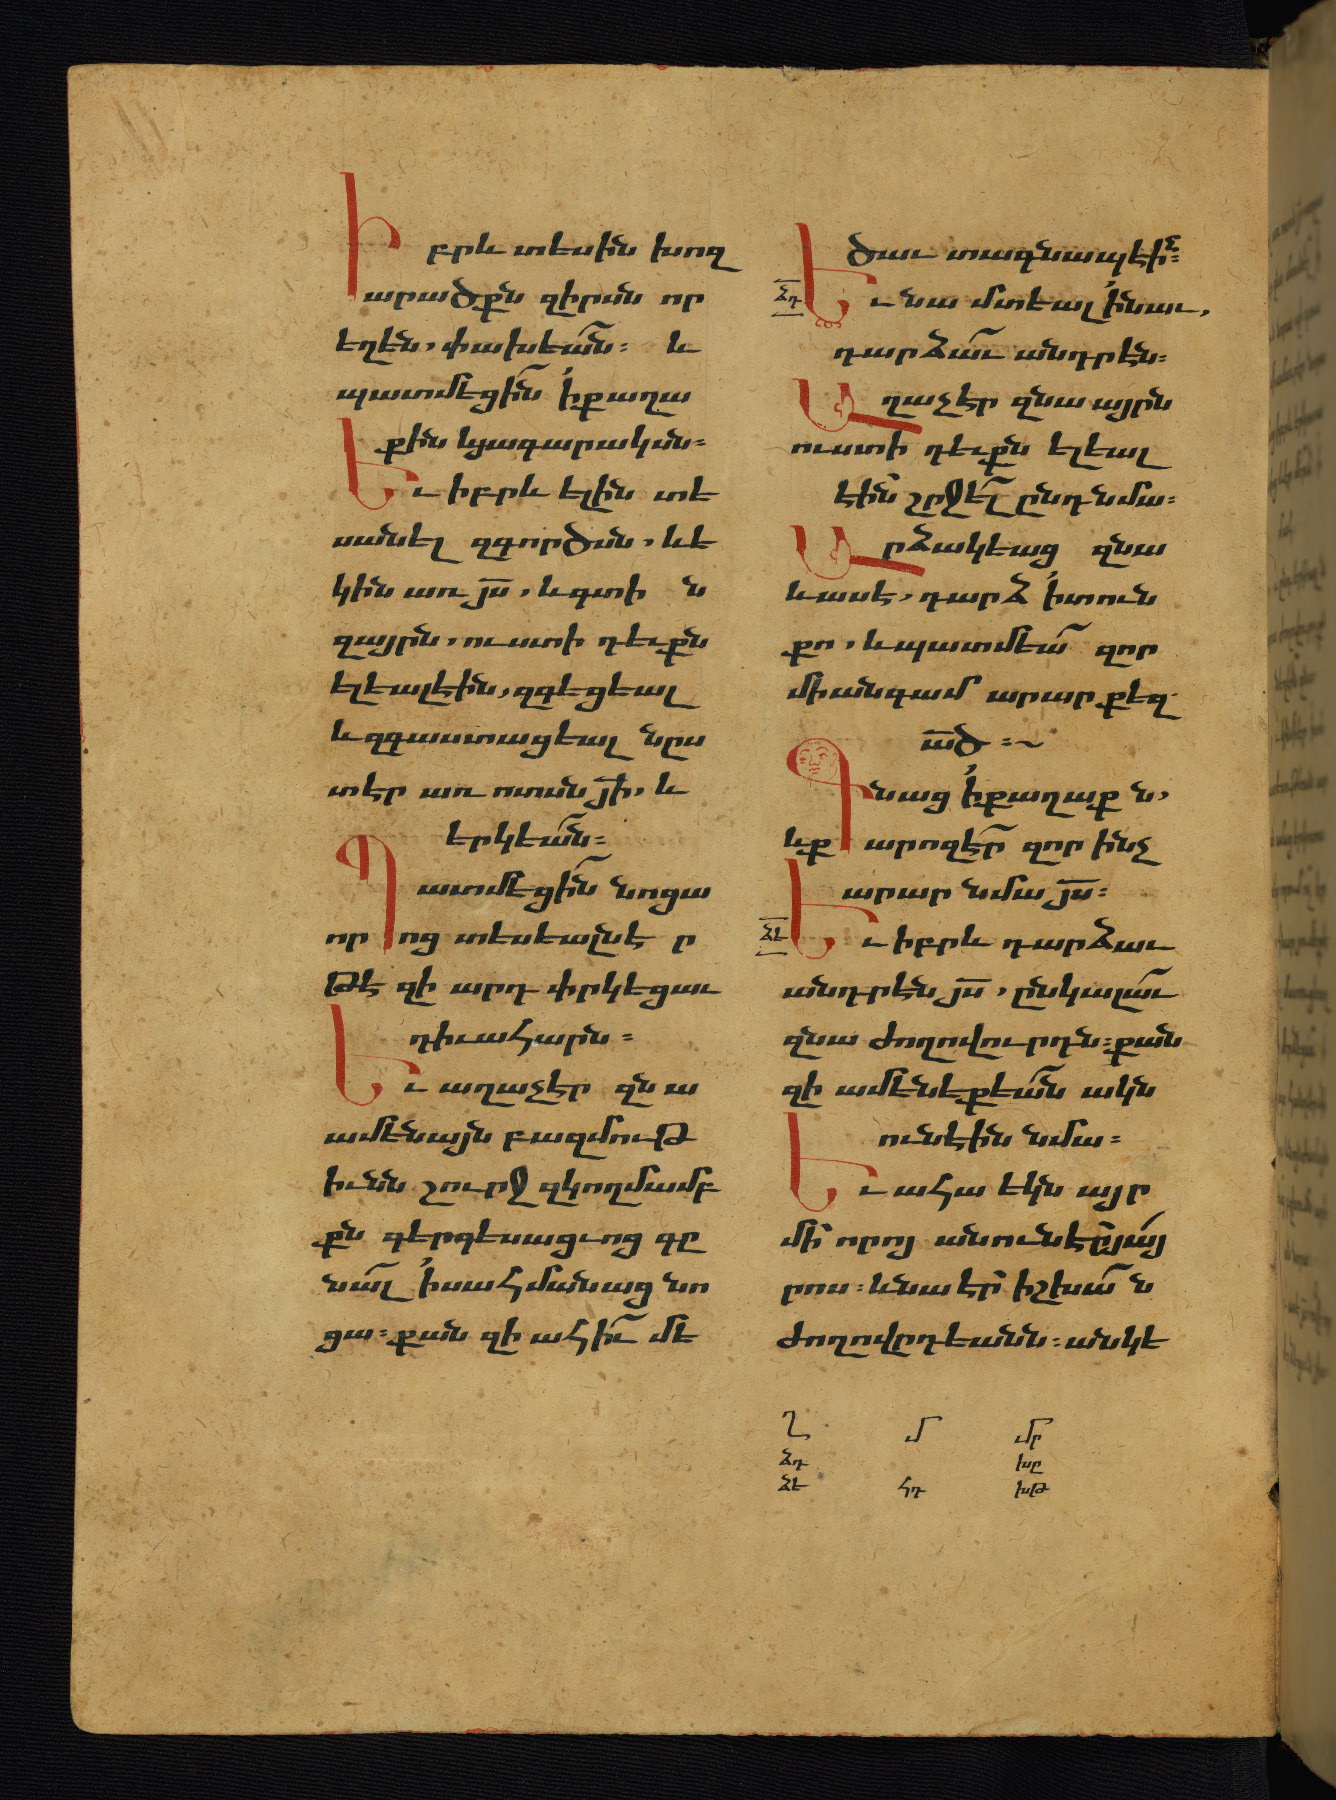 Իբրև տեսին խոզ
արածքն զիրսն որ
եղեն, փախեան։ և
պատմեցին ՛ի քաղա
քին և յագարակսն։
Եւ իբրև ելին տե
սանել զգործսն, և ե
կին առ յս, և գտի ն
զայրն, ուստի դեւքն
ելեալ էին, զգեցեալ
և զգաստացեալ նըս
տէր առ ոտսն յի, և
երկեան։
Պատմեցին նոցա
որ ոց տեսեալն է ը
թէ զի արդ փրկեցաւ
դիւահարն։
Եւ աղաչէր զն ա
ամենայն բազմութ
իւնն շուրջ զկողմամբ
քն գերգեսացւոց գը
նալ ՛ի սահմանաց նո
ցա։ քան զի ահիւ մե
ծաւ տագնապէին։
ՃԴ
Եւ նա մտեալ ՛ի նաւ,
դարձաւ անդրէն։
Աղաչէր զնա այրն
ուստի դեւքն ելեալ
էին շրջել ընդ նմա։
Արձակեաց զնա
և ասէ, դարձ ՛ի տուն
քո, և պատմեա զոր
միանգամ արար քեզ
ած։~
Գնաց ՛ի քաղաք ն,
և ք արոզէր զոր ինչ
արար նմա յս։
ՃԵ
Եւ իբրև դարձաւ
անդրէն յս, ընկալաւ
զնա ժողովուրդն։ քան
զի ամենեքեան ակն
ունէին նմա։
Եւ ահա եկն այր
մի որոյ անուն էր յայ
րոս։ և նա էր իշխան ն
ժողովրդեանն։ անկե
Ղ մ մր
ՃԴ խը
ՃԵ հդ խթ